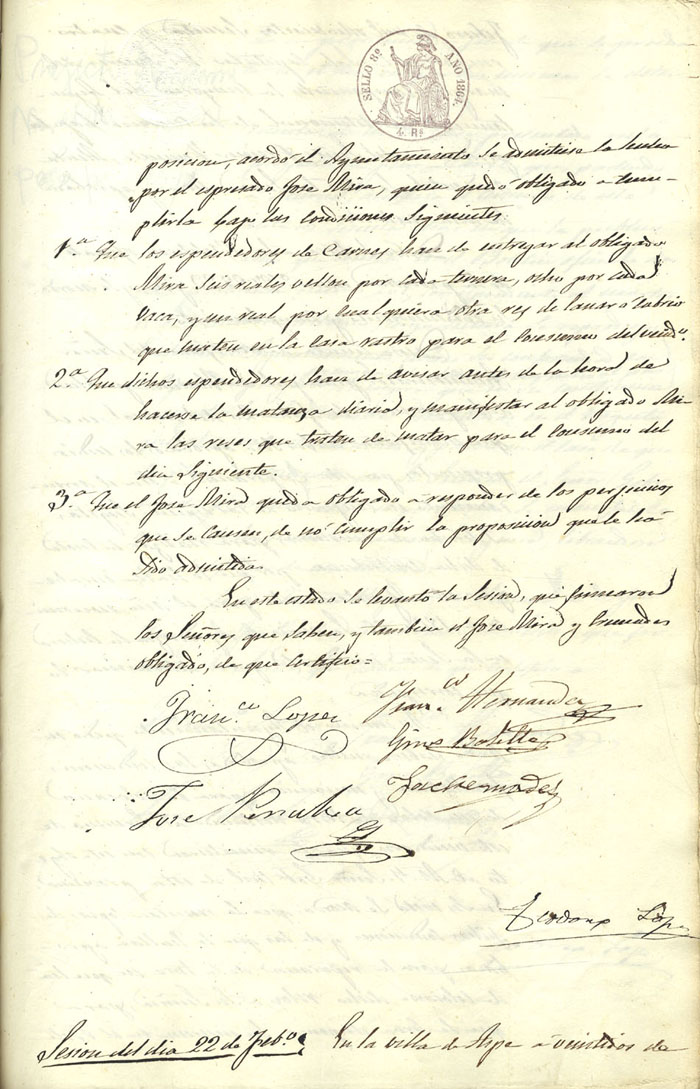 SELLO 8º AÑO 1864.
4 Rs
posicion, acordó el Ayuntamiento se admitiese la hecha
por el espresado Jose Mira, quien quedó obligado a cum-
plirla bajo las condiciones siguientes
1.ª Que los espendedores de Carnes han de entregar al obligado
Mira seis reales vellon por cada ternera, ocho por cada
vaca, y un real por cualquiera otra res de lanar o cabrio
que maten en la casa rastro para el Consumo del vend.º
2.ª Que dichos espendedores han de avisar antes de la hora de
hacerse la matanza diaria, y manifestar al obligado Mi-
ra las reses que traten de matar para el Consumo del
dia siguiente.
3.ª Que el Jose Mira queda obligado a responder de los perjuicios
que se causen, de no cumplir la proposicion que le ha
sido admitida
En este estado se levantó la Sesion, que firmaron
los Señores que saben, y tambien el Jose Mira y
obligado, de que certifico=
Fran.co Lopez
Fran.co Hernandez
Botella
Jose
Jose Hernandez
Teodoro Lopez
Sesion del dia 22 de Feb.º En la villa de Aspe a veintidos de